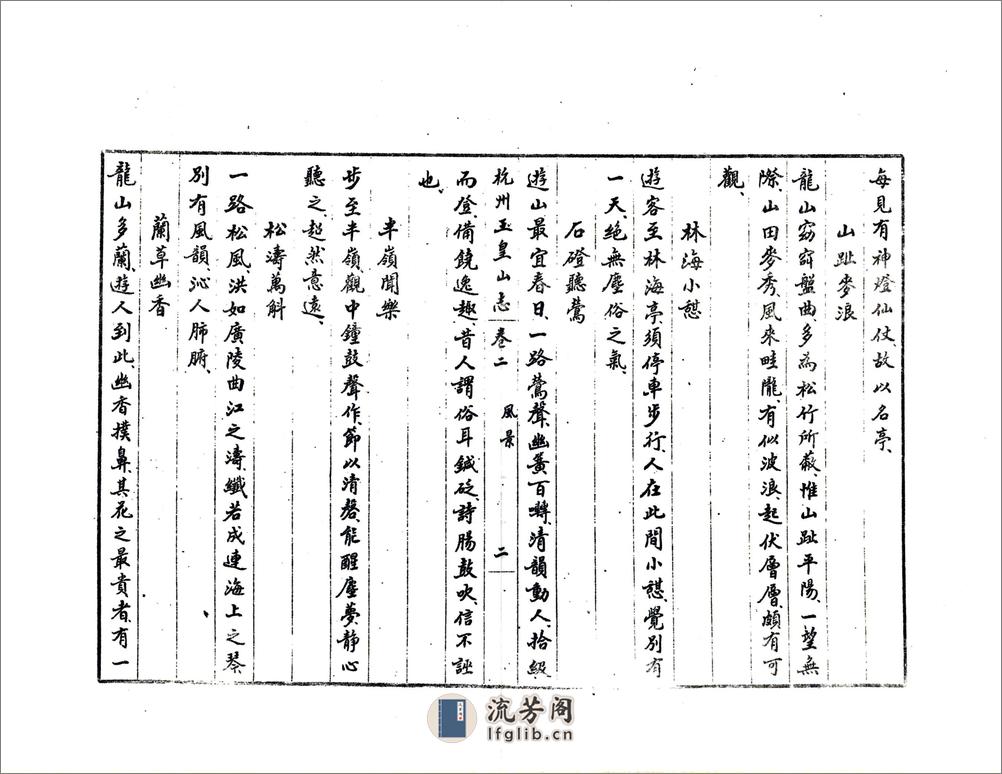 每見有神燈仙仗、故以名亭、
山趾麥浪
龍山窈窕盤曲、多為松竹所蔽、惟山趾平陽、一望無
際、山田麥秀、風來畦隴、有似波浪、起伏層層、頗有可
觀、
林海小憇
遊客至林海亭、須停車步行、人在此間小憇、覺別有
一天、絕無塵俗之氣、
石磴聽鶯
遊山最宜春日、一路鶯聲、幽簧百囀、清韻動人、拾級
杭州玉皇山志 卷二 風景 二
而登、備饒逸趣、昔人謂俗耳鍼砭、詩腸鼓吹、信不誣
也、
半嶺聞樂
步至半嶺、觀中鐘鼓聲作、節以清磬、能醒塵夢、靜心
聽之、超然意遠、
松濤萬斛
一路松風、洪如廣陵曲江之濤、纖若成連海上之琴、
別有風韻、沁人肺腑、
蘭草幽香
龍山多蘭、遊人到此、幽香撲鼻、其花之最貴者、有一
流芳阁
lfglib.cn